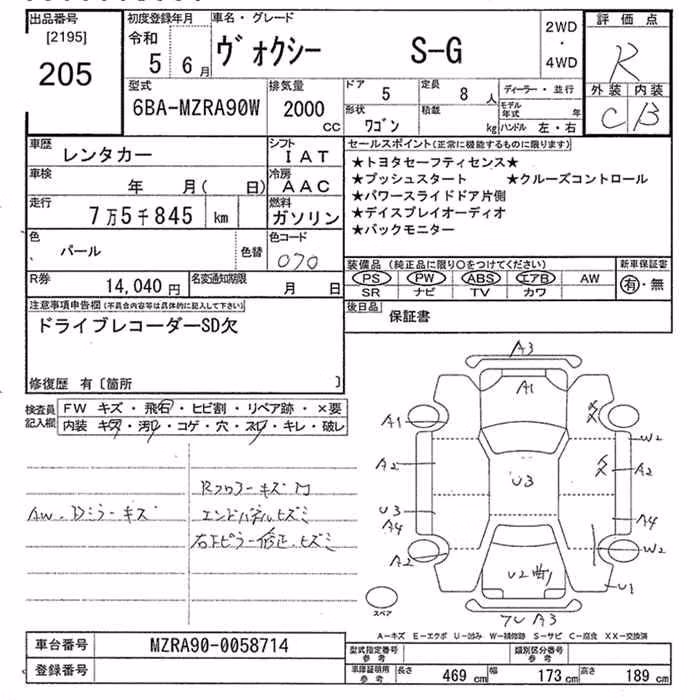 出品番号
[2195]
205
初度登録年月
令和
5 6月
車名・グレード
ヴォクシー S-G
2WD
・
4WD
評価点
R
外装 内装
C B
型式
6BA-MZRA90W
排気量
2000
CC
ドア
5
定員
8人
形状
ワゴン
積載
kg
ディーラー・並行
モデル年式 年
ハンドル 左・右
車歴
レンタカー
シフト
IAT
車検
年 月( 日)
冷房
AAC
走行
7万5千845 km
燃料
ガソリン
色
パール
色替
色コード
070
R券
14,040円
名変通知期限
月 日
セールスポイント(正常に機能するものに限ります)
★トヨタセーフティセンス★
★プッシュスタート ★クルーズコントロール
★パワースライドドア片側
★デイスプレイオーディオ
★バックモニター
装備品(純正品に限り○をつけてください)
PS PW ABS エアB AW
SR ナビ TV カワ
新車保証書
有・無
後日品
保証書
注意事項申告欄(不具合内容等は具体的に記入して下さい)
ドライブレコーダーSD欠
修復歴 有〔箇所 〕
検査員記入欄
FW キズ・飛石・ヒビ割・リペア跡・×要
内装 キズ・汚れ・コゲ・穴・スレ・キレ・破レ
Rフロアーキズ凹
AW・Dミラーキズ
エンドパネルヒズミ
右下ピラー修正・ヒズミ
A3
A1
A1
W2
A2
A2
U3
U3
A4
A4
A2
W2
U2曲
U1
A3
スペア
A-キズ E-エクボ U-凹み W-補修跡 S-サビ C-腐食 XX-交換済
車台番号
MZRA90-0058714
登録番号
型式指定番号
参考
類別区分番号
参考
車庫証明用
参考
長さ 469 cm 幅 173 cm 高さ 189 cm